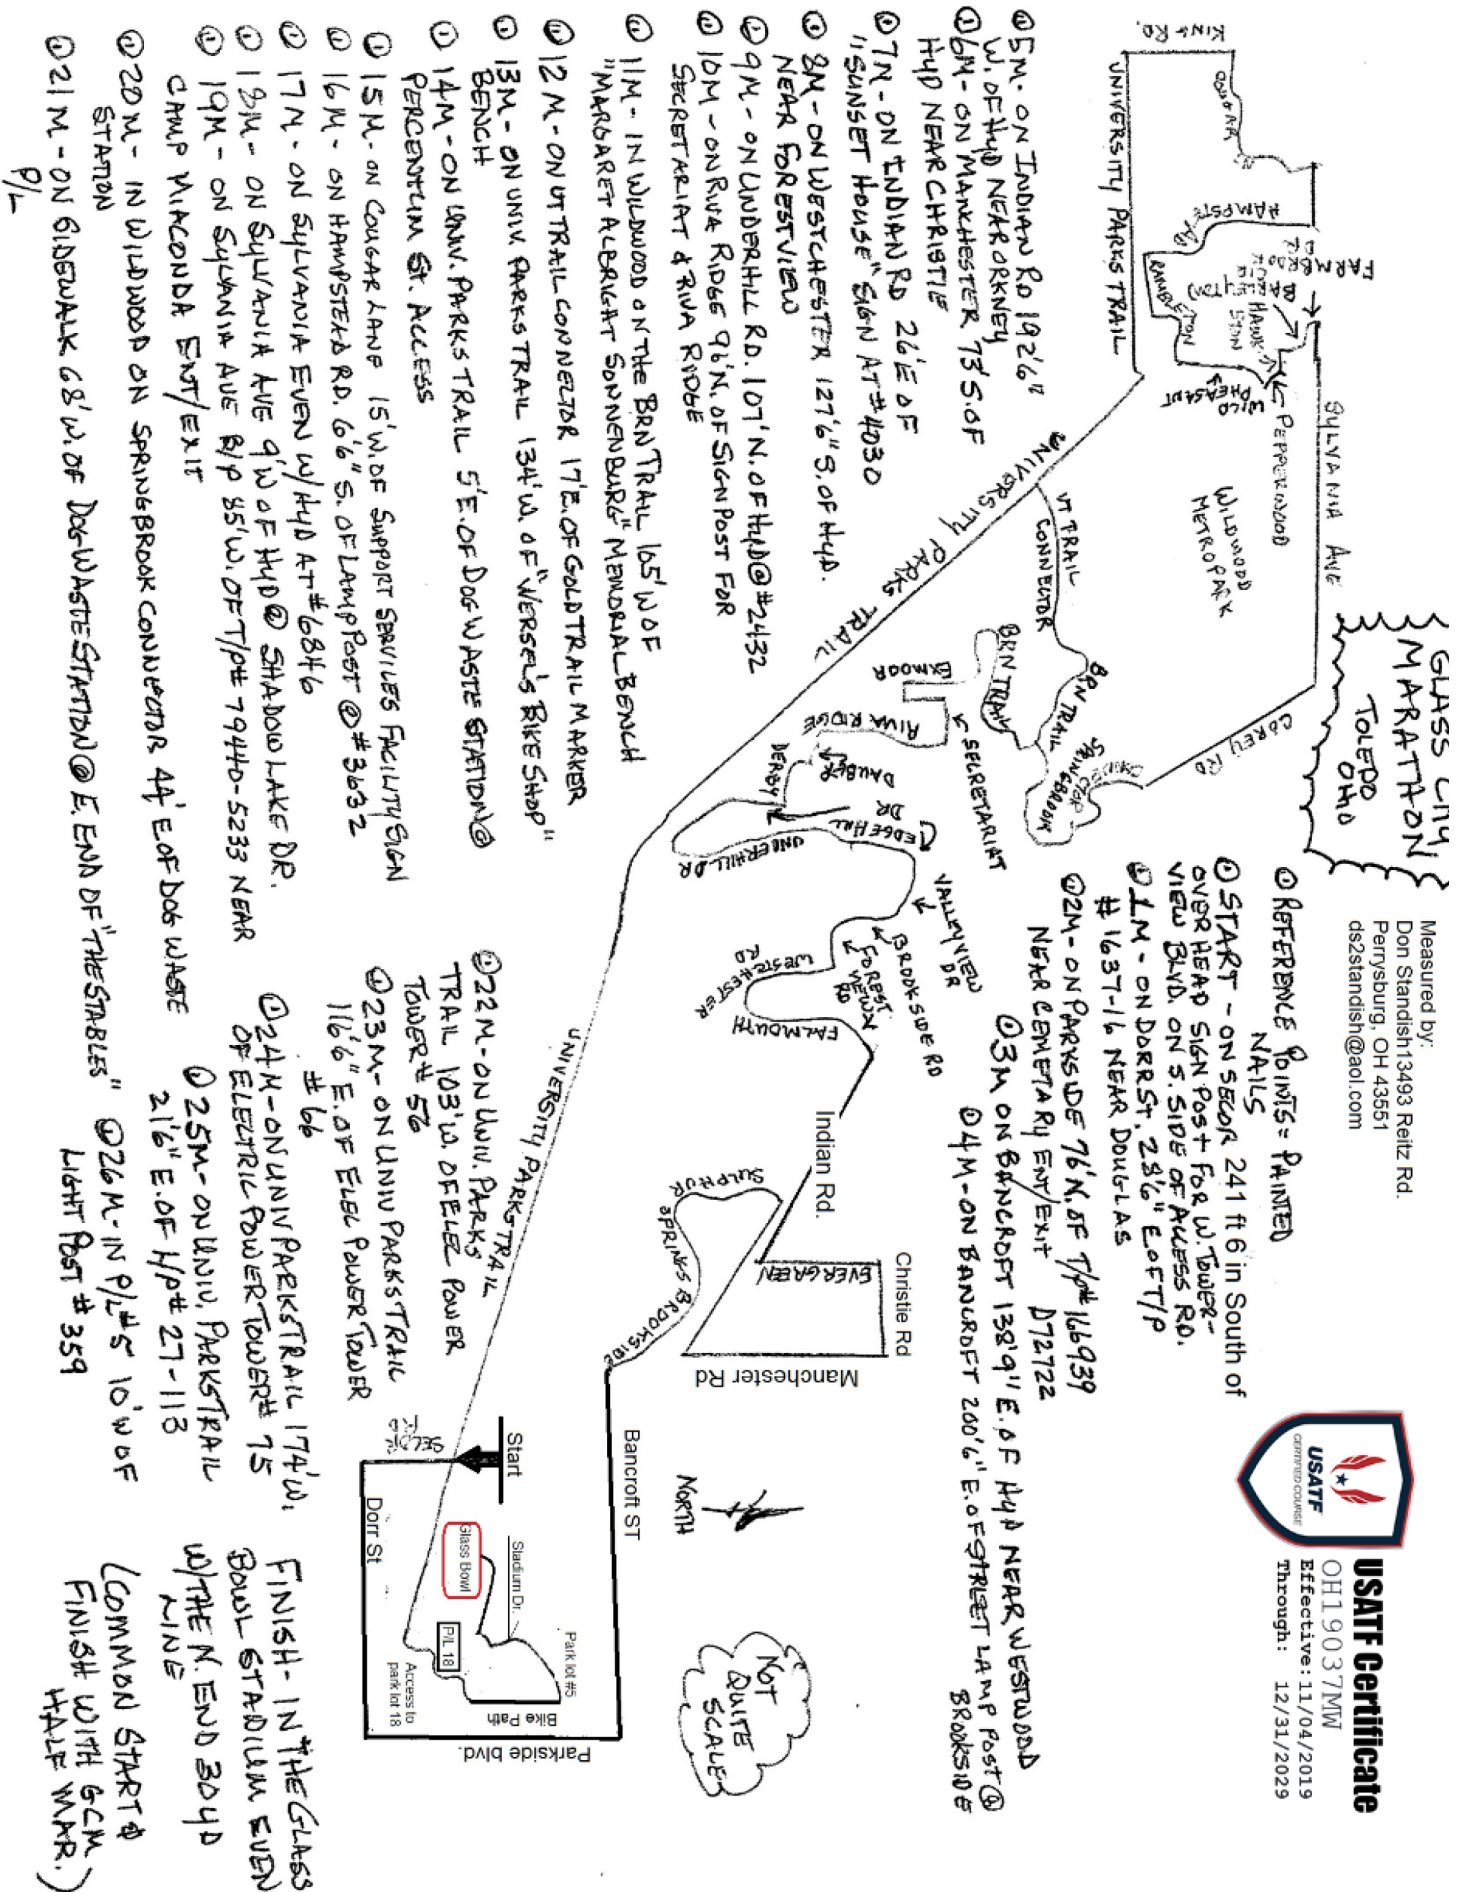 GLASS CITY
MARATHON
TOLEDO
OHIO
Measured by:
Don Standish13493 Reitz Rd.
Perrysburg, OH 43551
ds2standish@aol.com
USATF
CERTIFIED COURSE
USATF Certificate
OH19037MW
Effective: 11/04/2019
Through: 12/31/2029
REFERENCE POINTS = PAINTED
NAILS
START - ON SECOR 241 ft 6 in South of
OVERHEAD SIGN POST FOR W. TOWER-
VIEW BLVD. ON S. SIDE OF ACCESS RD.
1M - ON DORR ST. 28'6" E OF T/P
# 1637-16 NEAR DOUGLAS
2M - ON PARKSIDE 76' N. OF T/P# 166939
NEAR CEMETARY ENT/EXIT D72722
3M ON BANCROFT 138'9" E. OF HYD NEAR WESTWOOD
4M - ON BANCROFT 200'6" E. OF STREET LAMP POST @
BROOKSIDE
5M. ON INDIAN RD 192'6"
W. OF HYD NEAR ORKNEY
6M - ON MANCHESTER 73' S. OF
HYD NEAR CHRISTIE
7M - ON INDIAN RD 26' E OF
"SUNSET HOUSE" SIGN AT #4030
8M - ON WESTCHESTER 127'6" S. OF HYD.
NEAR FORESTVIEW
9M - ON UNDERHILL RD. 107' N. OF HYD @ #2432
10M - ON RIVA RIDGE 96' N. OF SIGN POST FOR
SECRETARIAT & RIVA RIDGE
11M - IN WILDWOOD ON THE BRN TRAIL 105' W OF
"MARGARET ALBRIGHT SONNENBURG" MEMORIAL BENCH
12M - ON UT TRAIL CONNECTOR 17' E. OF GOLD TRAIL MARKER
13M - ON UNIV. PARKS TRAIL 134' W. OF "WERSEL'S BIKE SHOP"
BENCH
14M - ON UNIV. PARKS TRAIL 5' E. OF DOG WASTE STATION @
PERCENTUM ST. ACCESS
15M - ON COUGAR LANE 15' W. OF SUPPORT SERVICES FACILITY SIGN
16M - ON HAMPSTEAD RD. 6'6" S. OF LAMP POST @ #3632
17M - ON SYLVANIA EVEN W/HYD AT #6846
18M - ON SYLVANIA AVE 9' W OF HYD @ SHADOW LAKE DR.
19M - ON SYLVANIA AVE B/P 85' W. OF T/P# 79440-5233 NEAR
CAMP MIACONDA ENT/EXIT
20M - IN WILDWOOD ON SPRINGBROOK CONNECTOR 44' E OF DOG WASTE
STATION
21M - ON SIDEWALK 68' W. OF DOG WASTE STATION @ E. END OF "THE STABLES"
P/L
22M - ON UNIV. PARKS
TRAIL 103' W. OF ELEC POWER
TOWER # 56
23M - ON UNIV PARKS TRAIL
116'6" E. OF ELEC POWER TOWER
# 66
24M - ON UNIV PARKS TRAIL 174' W.
OF ELECTRIC POWER TOWER # 75
25M - ON UNIV. PARKS TRAIL
21'6" E. OF H/P# 27-113
26M - IN P/L #5 10' W OF
LIGHT POST # 359
FINISH - IN THE GLASS
BOWL STADIUM EVEN
W/THE N. END 30 YD
LINE
(COMMON START &
FINISH WITH GCM
HALF MAR.)
KING RD.
COUGAR
HAMPSTEAD
UNIVERSITY PARKS TRAIL
FARMBROOK
DR
BARLEYTON
CIR
HAWKSTON
RAMBLETON
WILD
PHEASANT
PEPPERWOOD
SYLVANIA AVE
WILDWOOD
METROPARK
COREY RD
UNIVERSITY PARKS TRAIL
UT TRAIL
CONNECTOR
BRN TRAIL
BRN TRAIL
SPRINGBROOK
CONNECTOR
EXMOOR
SECRETARIAT
RIVA RIDGE
DAUBER
DERBY
DR
EDGEHILL
UNDERHILL DR
VALLEYVIEW
DR
BROOKSIDE RD
FOREST
VIEW
RD
WESTCHESTER
RD
FALMOUTH
Indian Rd.
Christie Rd
EVERGREEN
Manchester Rd
SULPHUR
SPRINGS
BROOKSIDE
Bancroft ST
UNIVERSITY PARKS TRAIL
NORTH
NOT
QUITE
SCALE
Start
SECOR
Dorr St
Glass Bowl
Stadium Dr.
P/L 18
Park lot #5
Access to
park lot 18
Bike Path
Parkside blvd.